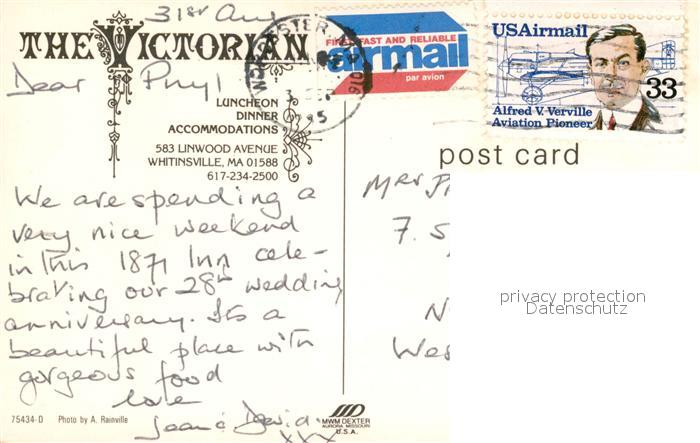 31st Au
THE VICTORIAN
Dear Phyl
LUNCHEON
DINNER
ACCOMMODATIONS
583 LINWOOD AVENUE
WHITINSVILLE, MA 01588
617-234-2500
We are spending a
very nice weekend
in this 1871 Inn cele-
brating our 28th wedding
anniversary. Its a
beautiful place with
gorgeous food
love
Jean & David
xxx
75434-D Photo by A. Rainville
MWM DEXTER
AURORA MISSOURI
U.S.A.
FIRST, FAST AND RELIABLE
airmail
par avion
USAirmail
33
Alfred V. Verville
Aviation Pioneer
post card
Mrs
7.
N
Wes
privacy protection
Datenschutz